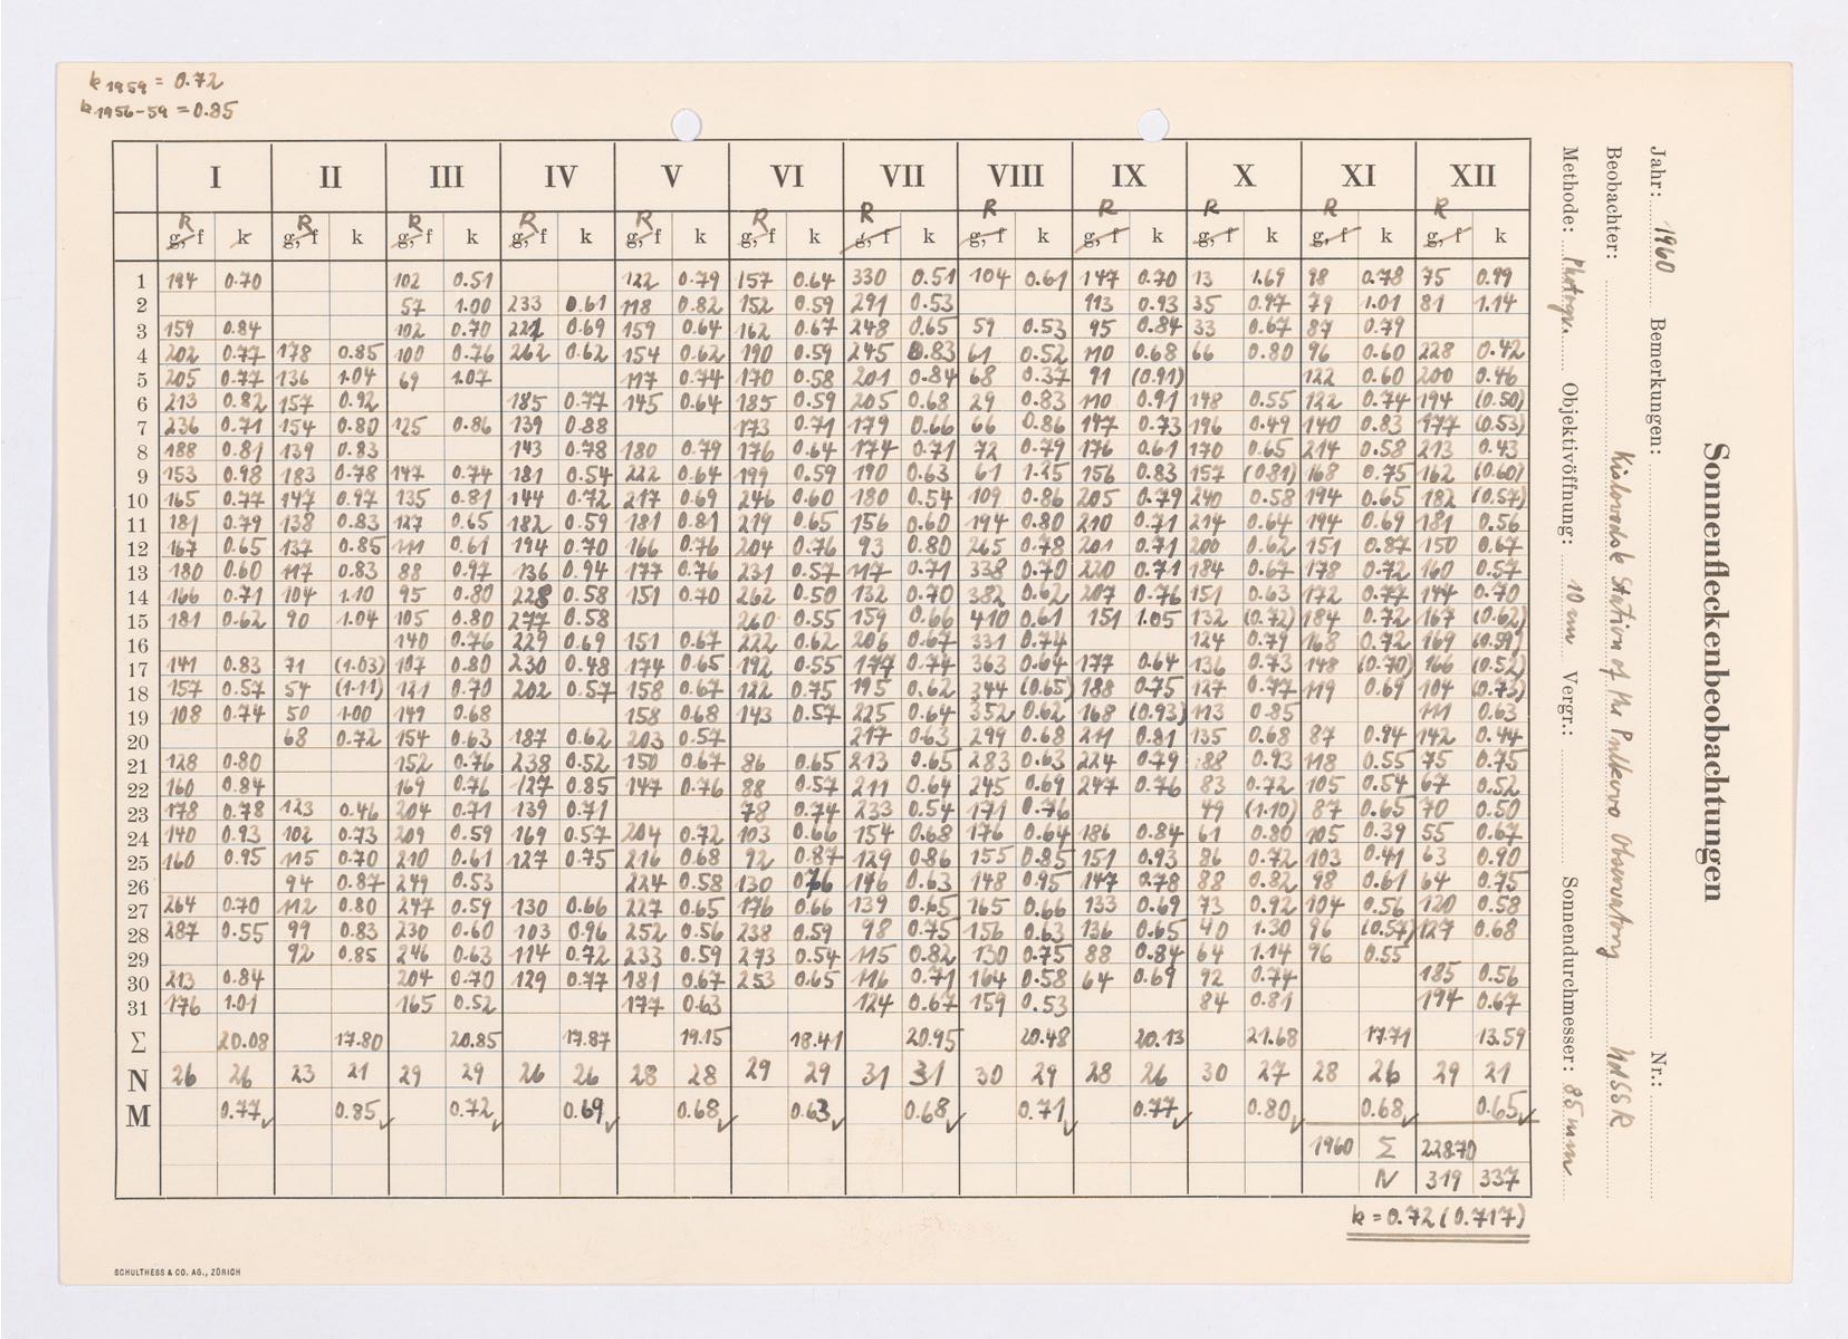 k 1959 = 0.72
k 1956-59 = 0.85
I II III IV V VI VII VIII IX X XI XII
R R R R R R R R R R R R
g, f k g, f k g, f k g, f k g, f k g, f k g, f k g, f k g, f k g, f k g, f k g, f k
1 194 0.70 102 0.51 122 0.79 157 0.64 330 0.51 104 0.61 147 0.70 13 1.69 98 0.78 75 0.99
2 57 1.00 233 0.61 118 0.82 152 0.59 291 0.53 113 0.93 35 0.97 79 1.01 81 1.14
3 159 0.84 102 0.70 221 0.69 159 0.64 162 0.67 248 0.65 59 0.53 95 0.84 33 0.67 87 0.79
4 202 0.77 178 0.85 100 0.76 262 0.62 154 0.62 190 0.59 245 0.83 61 0.52 110 0.68 66 0.80 96 0.60 228 0.42
5 205 0.77 136 1.04 69 1.07 117 0.74 170 0.58 201 0.84 68 0.37 91 (0.91) 122 0.60 200 0.46
6 213 0.82 157 0.92 185 0.77 145 0.64 185 0.59 205 0.68 29 0.83 110 0.91 148 0.55 122 0.74 194 (0.50)
7 236 0.71 154 0.80 125 0.86 139 0.88 173 0.71 179 0.66 66 0.86 147 0.73 196 0.49 140 0.83 177 (0.53)
8 188 0.81 139 0.83 143 0.78 180 0.79 176 0.64 174 0.71 72 0.79 176 0.61 170 0.65 214 0.58 213 0.43
9 153 0.98 183 0.78 147 0.74 181 0.54 222 0.64 199 0.59 190 0.63 61 1.25 156 0.83 157 (0.81) 168 0.75 162 (0.60)
10 165 0.77 147 0.97 135 0.81 144 0.72 217 0.69 246 0.60 180 0.54 109 0.86 205 0.79 240 0.58 194 0.65 182 (0.57)
11 181 0.79 138 0.83 127 0.65 182 0.59 181 0.81 219 0.65 156 0.60 194 0.80 210 0.71 214 0.64 194 0.69 181 0.56
12 167 0.65 137 0.85 111 0.61 194 0.70 166 0.76 204 0.76 93 0.80 265 0.78 201 0.71 200 0.62 151 0.87 150 0.67
13 180 0.60 117 0.83 88 0.97 136 0.94 177 0.76 231 0.57 117 0.71 338 0.70 220 0.71 184 0.67 178 0.72 160 0.57
14 166 0.71 104 1.10 95 0.80 228 0.58 151 0.70 262 0.50 132 0.70 382 0.62 207 0.76 151 0.63 172 0.77 144 0.70
15 181 0.62 90 1.04 105 0.80 277 0.58 260 0.55 159 0.66 410 0.61 151 1.05 132 (0.72) 184 0.72 167 (0.62)
16 140 0.76 229 0.69 151 0.67 222 0.62 206 0.67 331 0.74 124 0.79 168 0.72 169 (0.59)
17 141 0.83 71 (1.03) 107 0.80 230 0.48 174 0.65 192 0.55 177 0.74 363 0.64 177 0.64 136 0.73 148 (0.70) 166 (0.52)
18 157 0.57 54 (1.11) 121 0.70 202 0.57 158 0.67 122 0.75 195 0.62 344 (0.65) 188 0.75 127 0.77 119 0.69 104 (0.73)
19 108 0.74 50 1.00 149 0.68 158 0.68 143 0.57 225 0.64 352 0.62 168 (0.93) 113 0.85 111 0.63
20 68 0.72 154 0.63 187 0.62 203 0.57 217 0.63 299 0.68 211 0.81 135 0.68 87 0.94 142 0.44
21 128 0.80 152 0.76 238 0.52 150 0.67 86 0.65 213 0.65 283 0.63 224 0.79 88 0.93 118 0.55 75 0.75
22 160 0.84 169 0.76 127 0.85 147 0.76 88 0.57 211 0.64 245 0.69 247 0.76 83 0.72 105 0.54 67 0.52
23 178 0.78 123 0.46 204 0.71 139 0.71 78 0.74 233 0.54 171 0.76 49 (1.10) 87 0.65 70 0.50
24 140 0.93 102 0.73 209 0.59 169 0.57 204 0.72 103 0.66 154 0.68 176 0.64 186 0.84 61 0.80 105 0.39 55 0.67
25 160 0.95 115 0.70 210 0.61 127 0.75 216 0.68 92 0.87 129 0.86 155 0.85 151 0.93 86 0.72 103 0.41 63 0.90
26 94 0.87 249 0.53 224 0.58 130 0.76 146 0.63 148 0.95 147 0.78 88 0.82 98 0.61 64 0.75
27 264 0.70 112 0.80 247 0.59 130 0.66 227 0.65 176 0.66 139 0.65 165 0.66 133 0.69 73 0.92 104 0.56 120 0.58
28 287 0.55 99 0.83 230 0.60 103 0.96 252 0.56 238 0.59 98 0.75 156 0.63 136 0.65 40 1.30 96 (0.57) 127 0.68
29 92 0.85 246 0.63 114 0.72 233 0.59 273 0.54 115 0.82 130 0.75 88 0.84 64 1.14 96 0.55
30 213 0.84 204 0.70 129 0.77 181 0.67 253 0.65 116 0.71 164 0.58 64 0.69 92 0.74 185 0.56
31 176 1.01 165 0.52 177 0.63 124 0.67 159 0.53 84 0.81 194 0.67
Σ 20.08 17.80 20.85 17.87 19.15 18.41 20.95 20.48 20.13 21.68 17.71 13.59
N 26 26 23 21 29 29 26 26 28 28 29 29 31 31 30 29 28 26 30 27 28 26 29 21
M 0.77 0.85 0.72 0.69 0.68 0.63 0.68 0.71 0.77 0.80 0.68 0.65
1960 Σ 228.70
N 319 337
k = 0.72 (0.717)
SCHULTHESS & CO. AG., ZÜRICH
Sonnenfleckenbeobachtungen
Jahr: 1960 Bemerkungen: Nr.:
Beobachter: Kislovodsk Station of the Pulkovo Observatory UdSSR
Methode: Photogr. Objektivöffnung: 10 cm Vergr.: Sonnendurchmesser: 85 mm